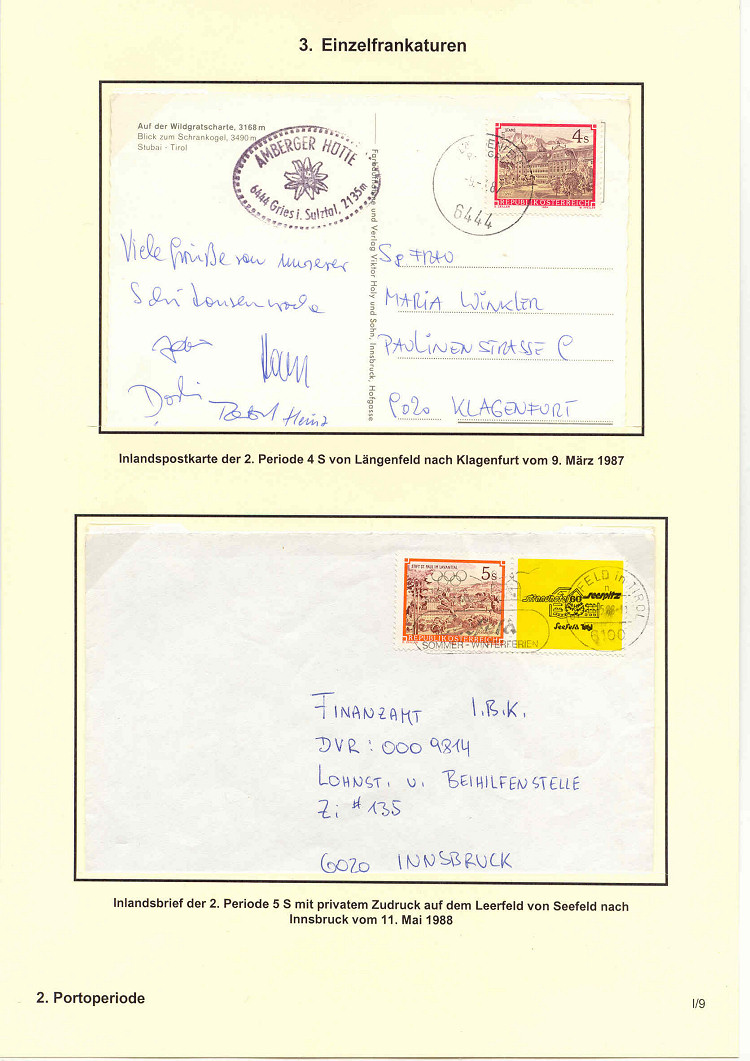 3. Einzelfrankaturen
Auf der Wildgratscharte, 3168 m
Blick zum Schrankogel, 3490 m
Stubai - Tirol
AMBERGER HÜTTE
6444 Gries i. Sulztal, 2135m
Farbaufnahme und Verlag Viktor Holy und Sohn, Innsbruck, Hofgasse
STAMS
4s
REPUBLIK ÖSTERREICH
6444
Viele Grüße von unserer
Schitourenwoche
Dorli
Robert Heinz
Sg FRAU
MARIA WINKLER
PAULINENSTRASSE
9020 KLAGENFURT
Inlandspostkarte der 2. Periode 4 S von Längenfeld nach Klagenfurt vom 9. März 1987
STIFT ST. PAUL IM LAVANTTAL
5s
REPUBLIK ÖSTERREICH
SOMMER - WINTERFERIEN
Strandhotel seespitz
60
Seefeld Tirol
FELD in TIROL
6100
FINANZAMT I.B.K.
DVR: 000 9814
LOHNST. U. BEIHILFENSTELLE
Zi # 135
6020 INNSBRUCK
Inlandsbrief der 2. Periode 5 S mit privatem Zudruck auf dem Leerfeld von Seefeld nach
Innsbruck vom 11. Mai 1988
2. Portoperiode
I/9